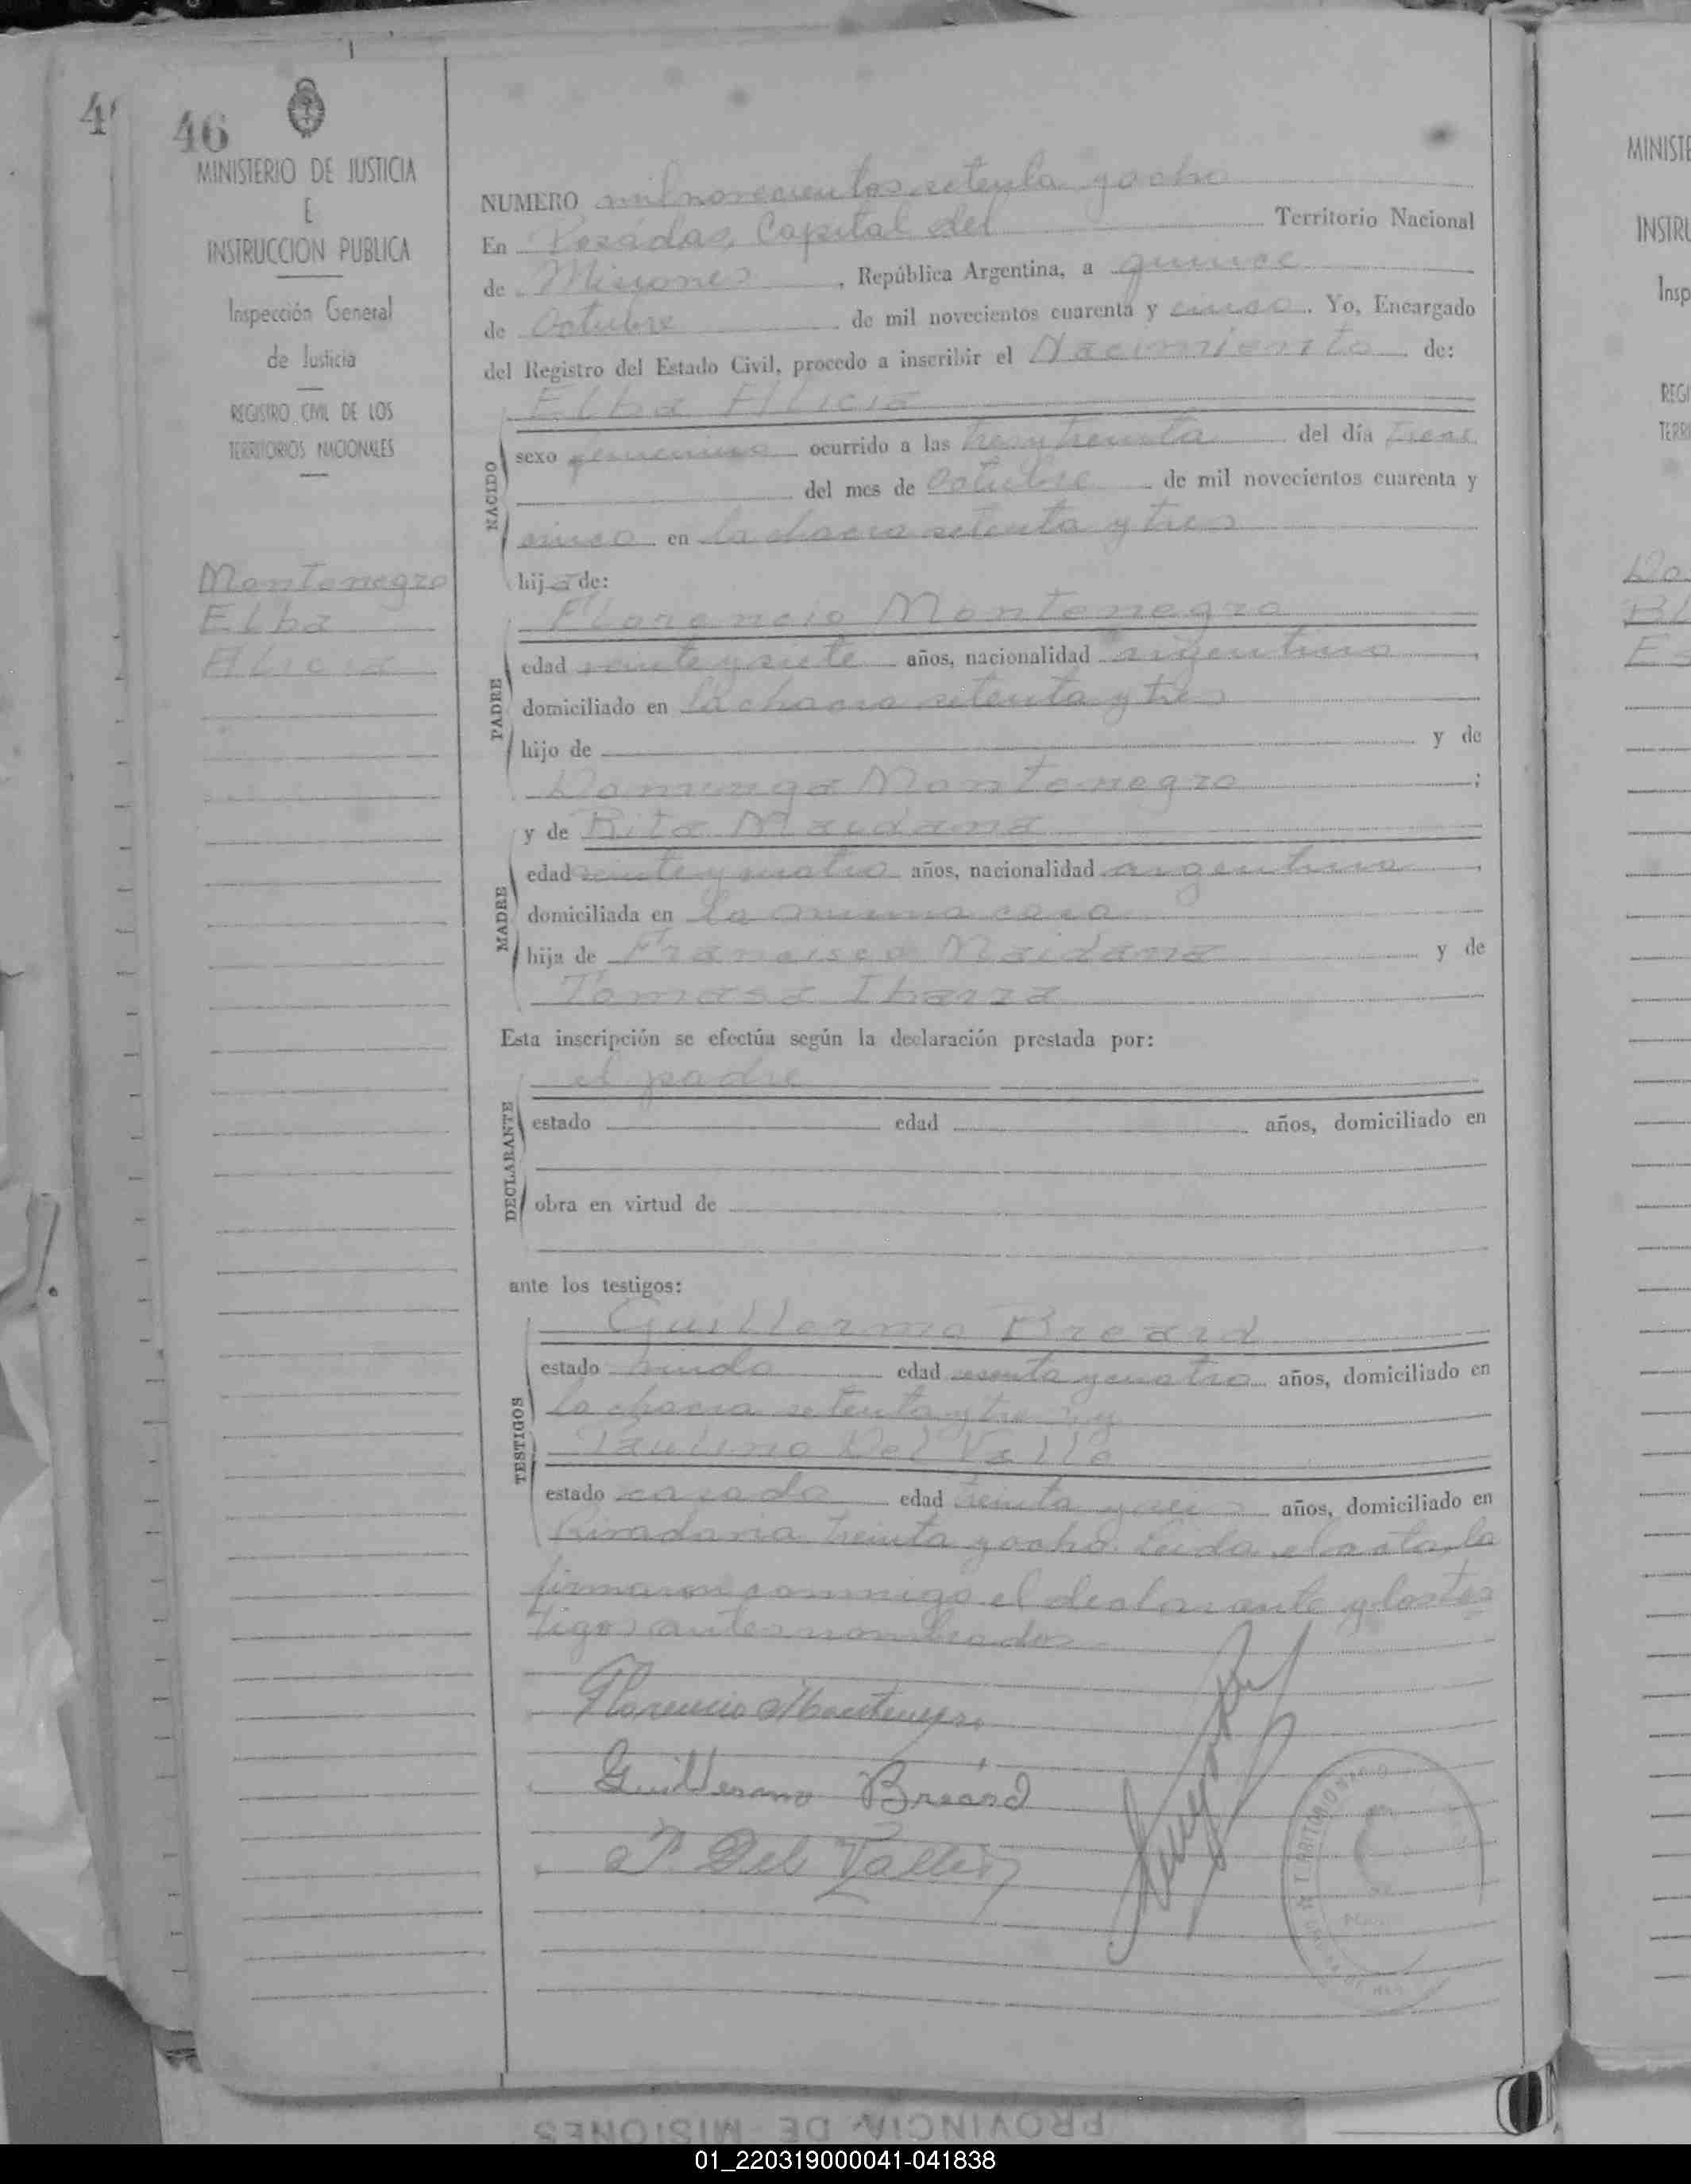 46
MINISTERIO DE JUSTICIA
E
INSTRUCCION PUBLICA
Inspección General
de Justicia
REGISTRO CIVIL DE LOS
TERRITORIOS NACIONALES
Montenegro
Elba
Alicia
NUMERO mil novecientos setenta y ocho
En Posadas, Capital del Territorio Nacional
de Misiones, República Argentina, a quince
de Octubre de mil novecientos cuarenta y cinco. Yo, Encargado
del Registro del Estado Civil, procedo a inscribir el Nacimiento de:
Elba Alicia
NACIDO
sexo femenino ocurrido a las tres y treinta del día trece
del mes de Octubre de mil novecientos cuarenta y
cinco en la chacra setenta y tres
hija de:
Florencio Montenegro
PADRE
edad veinte y siete años, nacionalidad argentino,
domiciliado en la chacra setenta y tres
hijo de y de
Dominga Montenegro;
y de Rita Maidana
MADRE
edad veinte y cuatro años, nacionalidad argentina,
domiciliada en la misma casa
hija de Francisco Maidana y de
Tomasa Ibarra
Esta inscripción se efectúa según la declaración prestada por:
el padre
DECLARANTE
estado edad años, domiciliado en
obra en virtud de
ante los testigos:
Guillermo Breard
TESTIGOS
estado viudo edad sesenta y cuatro años, domiciliado en
la chacra setenta y tres y
Paulino Del Valle
estado casado edad treinta y seis años, domiciliado en
Rivadavia treinta y ocho. Leida el acta, la
firmaron conmigo el declarante y los tes
tigos antes nombrados
Florencio Montenegro
Guillermo Breard
P. Del Valle
TERRITORIO NAC
PROVINCIA DE MISIONES
01_220319000041-041838
MINISTE
INSTRU
Insp
REGI
TERRI